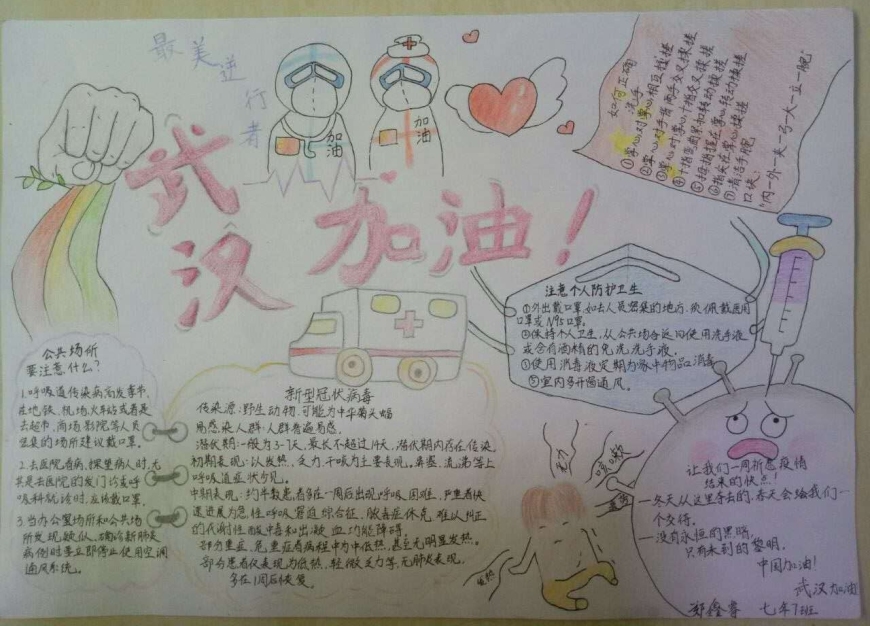 最美逆行者
加油
加油
武汉加油！
如何正确
洗手
①掌心对掌心相互揉搓
②掌心对手背两手交叉揉搓
③掌心对掌心十指交叉揉搓
④十指弯曲紧扣转动揉搓
⑤拇指握在掌心转动揉搓
⑥指尖在掌心揉搓
⑦清洁手腕
口诀：
"内一外一夹一弓一大一立一腕"
注意个人防护卫生
①外出戴口罩，如去人员密集的地方，须佩戴医用
口罩或N95口罩。
②保持个人卫生，从公共场合返回使用洗手液
或含有酒精的免洗洗手液。
③使用消毒液定期为家中物品消毒
⑤室内多开窗通风。
公共场所
要注意什么？
1.呼吸道传染病高发季节，
在地铁、机场、火车站或者是
去超市、商场、影院等人员
密集的场所建议戴口罩。
2.去医院看病、探望病人时，尤
其是去医院的发门诊或呼
吸科就诊时，应该戴口罩。
3.当办公室场所和公共场
所发现疑似、确诊新肺炎
病例时要立即停止使用空调
通风系统。
新型冠状病毒
传染源：野生动物，可能为中华菊头蝠
易感染人群：人群普遍易感。
潜伏期：一般为3-7天，最长不超过14天，潜伏期内存在传染
初期表现：以发热，乏力，干咳为主要表现，鼻塞，流涕等上
呼吸道症状少见。
中期表现：约半数患者多在一周后出现呼吸困难，严重者快
速进展为急性呼吸窘迫综合征，脓毒症休克，难以纠正
的代谢性酸中毒和出凝血功能障碍。
部分重症，危重症者病程中为中低热，甚至无明显发热。
部分患者仅表现为低热，轻微乏力等，无肺炎表现，
多在1周后恢复。
乏力
咳嗽
发热
让我们一同祈愿疫情
结束的快点！
一冬天从这里夺去的，春天会给我们一
个交待。
一没有永恒的黑暗，
只有未到的黎明。
中国加油！
武汉加油
郑鑫睿 七年7班